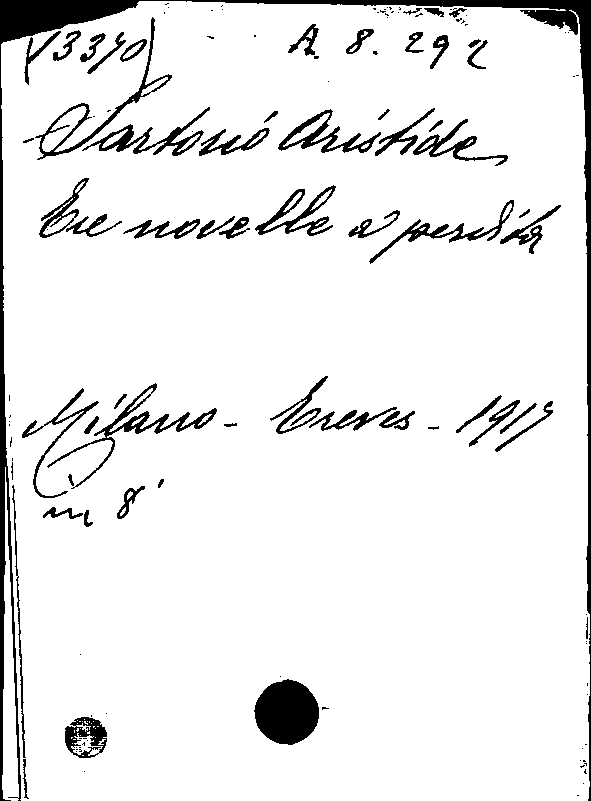 (3370) A. 8. 292
Sartorio Aristide
Tre novelle a perdita
Milano - Treves - 1917
in 8°